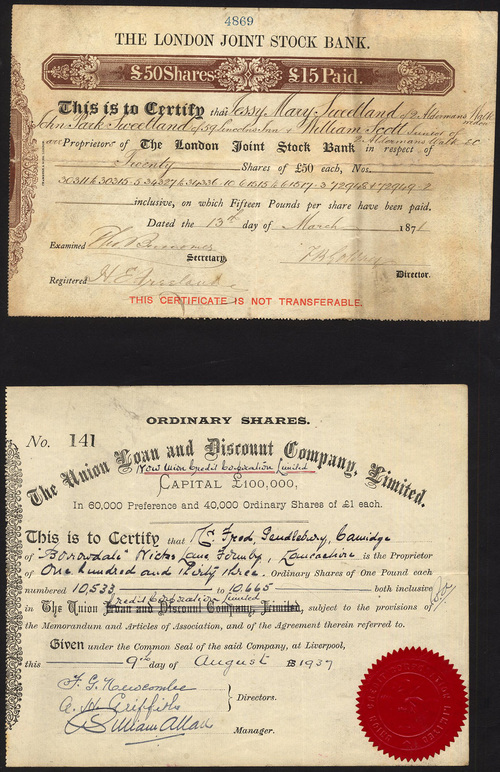 4869
THE LONDON JOINT STOCK BANK.
£50 Shares £15 Paid.
This is to Certify that Jessy Mary Swedland of 2 Aldermans Walk
John Park Swedland of 59 Lincolns Inn & William Scott
are Proprietors of The London Joint Stock Bank in respect of
Twenty Shares of £50 each, Nos.
inclusive, on which Fifteen Pounds per share have been paid.
Dated the 13th day of March 1871
Examined
Secretary.
Director.
Registered
THIS CERTIFICATE IS NOT TRANSFERABLE.
ORDINARY SHARES.
No. 141
The Union Loan and Discount Company, Limited.
Now Union Credit Co-operation Limited
CAPITAL £100,000,
In 60,000 Preference and 40,000 Ordinary Shares of £1 each.
This is to Certify that Mr. Fred, Pendlebury, Camidge
of "Borrowdale" Wicks Lane Formby, Lancashire is the Proprietor
of One hundred and thirty three Ordinary Shares of One Pound each
numbered 10,533 to 10,665 both inclusive
Credit Co-operation Limited
in The Union Loan and Discount Company, Limited, subject to the provisions of
the Memorandum and Articles of Association, and of the Agreement therein referred to.
Given under the Common Seal of the said Company, at Liverpool,
this 9th day of August 1937
F. G. Newcombe
A. H. Griffiths
Directors.
William Allan
Manager.